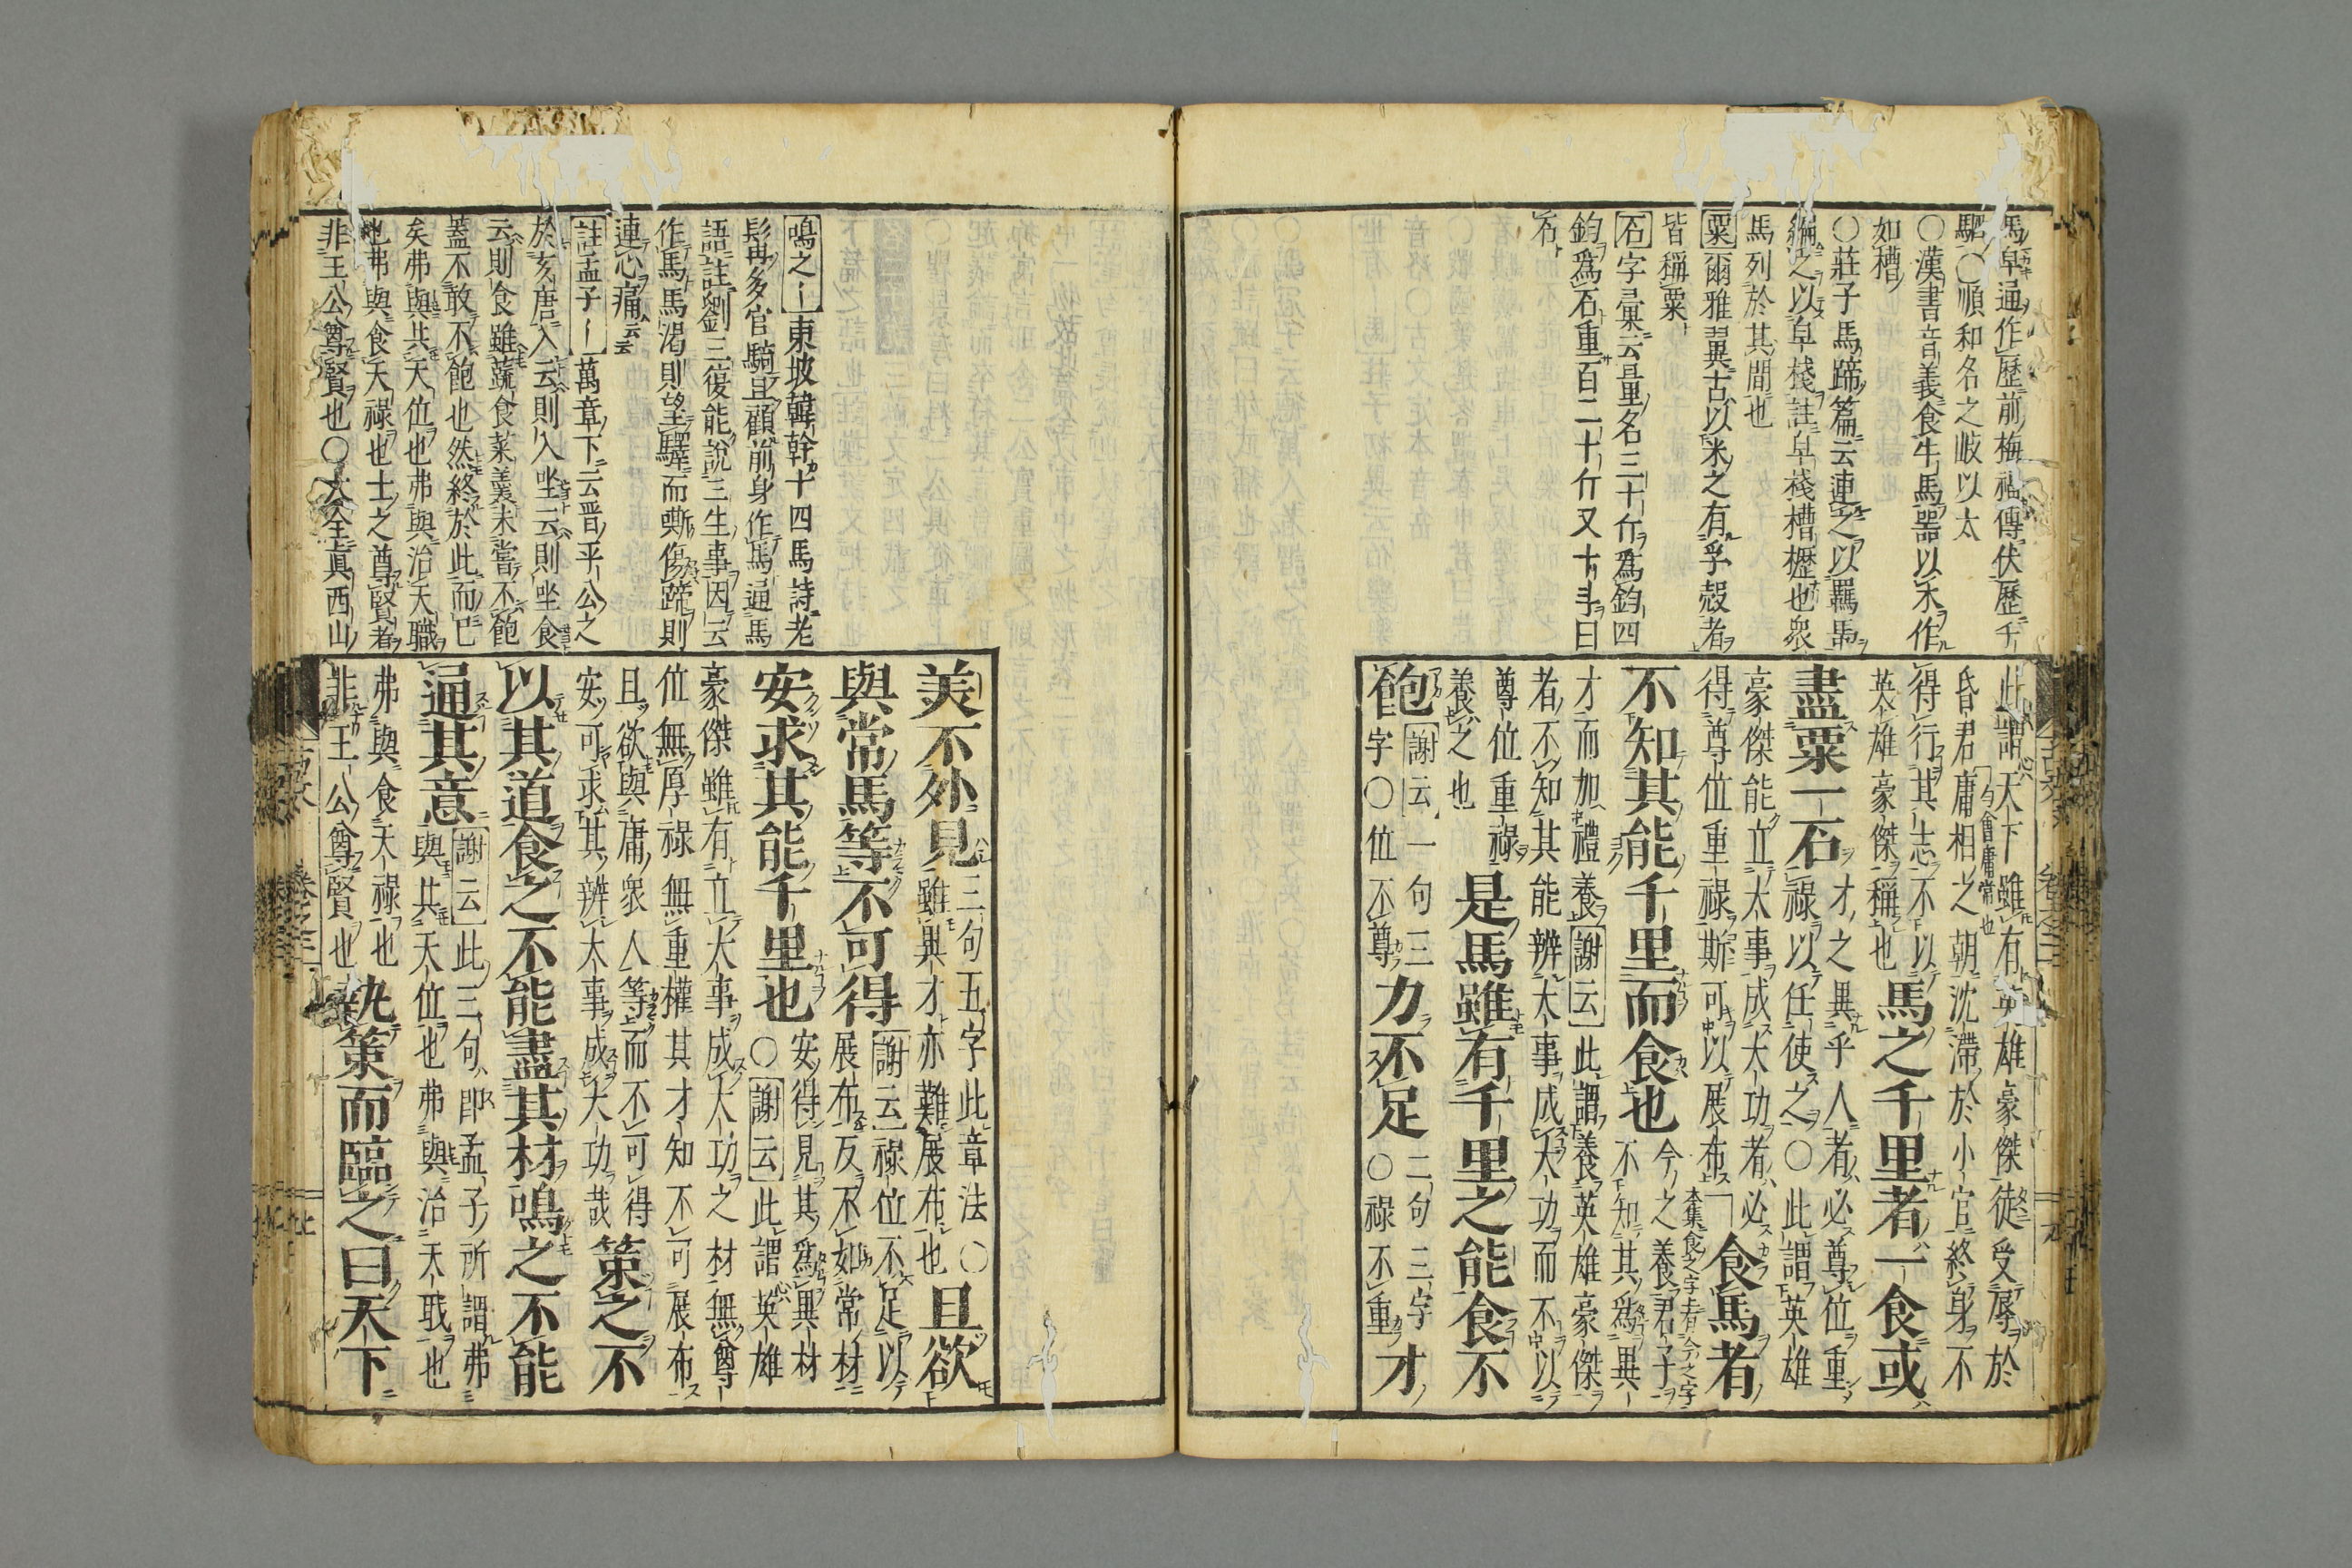 馬皁通作歷前梅福傳伏歷千
駟〇順和名之岐以太
〇漢書音義食牛馬器以禾作
如槽
〇莊子馬蹄篇云連之以羈馬
編之以皁棧註皁棧槽櫪也衆
馬列於其間也
粟爾雅翼古以米之有孚殼者
皆稱粟
石字彙云量名三十斤爲鈞四
鈞爲石重百二十斤又十斗曰
石
此謂天下雖有英雄豪傑徒受辱於
昏君庸相之朝沈滯於小官終身不
勻會庸常也
得行其志不以
英雄豪傑稱也
馬之千里者一食或
盡粟一石
才之異乎人者必尊位重
祿以任使之〇此謂英雄
豪傑能立大事成大功者必
得尊位重祿斯可以展布
食馬者
不知其能千里而食也
今之養君子
本集食之字
不知其爲異
才而加禮養謝云此謂養英雄豪傑
者不知其能辨大事成大功而不以
尊位重祿
養之也
是馬雖有千里之能食不
飽
謝云一句三
字〇位不尊
力不足
二句三字
〇祿不重
才
鳴之東坡韓幹十四馬詩老
髯奚官騎且顧前身作馬通馬
語註劉三復能說三生事因云
作馬馬渴則望驛而嘶傷蹄則
連心痛云云
註孟子萬章下云晋平公之
於亥唐入云則入坐云則坐食
云則食雖蔬食菜羹未嘗不飽
蓋不敢不飽也然終於此而已
矣弗與共天位也弗與治天職
也弗與食天祿也士之尊賢者
非王公尊賢也〇大全眞西山
美不外見
三句五字此章法〇
雖異才亦難展布也
且欲
與常馬等不可得
謝云祿位不足以
展布反不如常材
安求其能千里也
安得見其爲異材
〇謝云此謂英雄
豪傑雖有立大事成大功之材無尊
位無厚祿無重權其才知不可展布
且欲與庸衆人等而不可得
安可求其辨大事成大功哉
策之不
以其道食之不能盡其材鳴之不能
通其意
謝云此三句卽孟子所謂弗
與共天位也弗與治天職也
弗與食天祿也
非王公尊賢也
執策而臨之曰天下